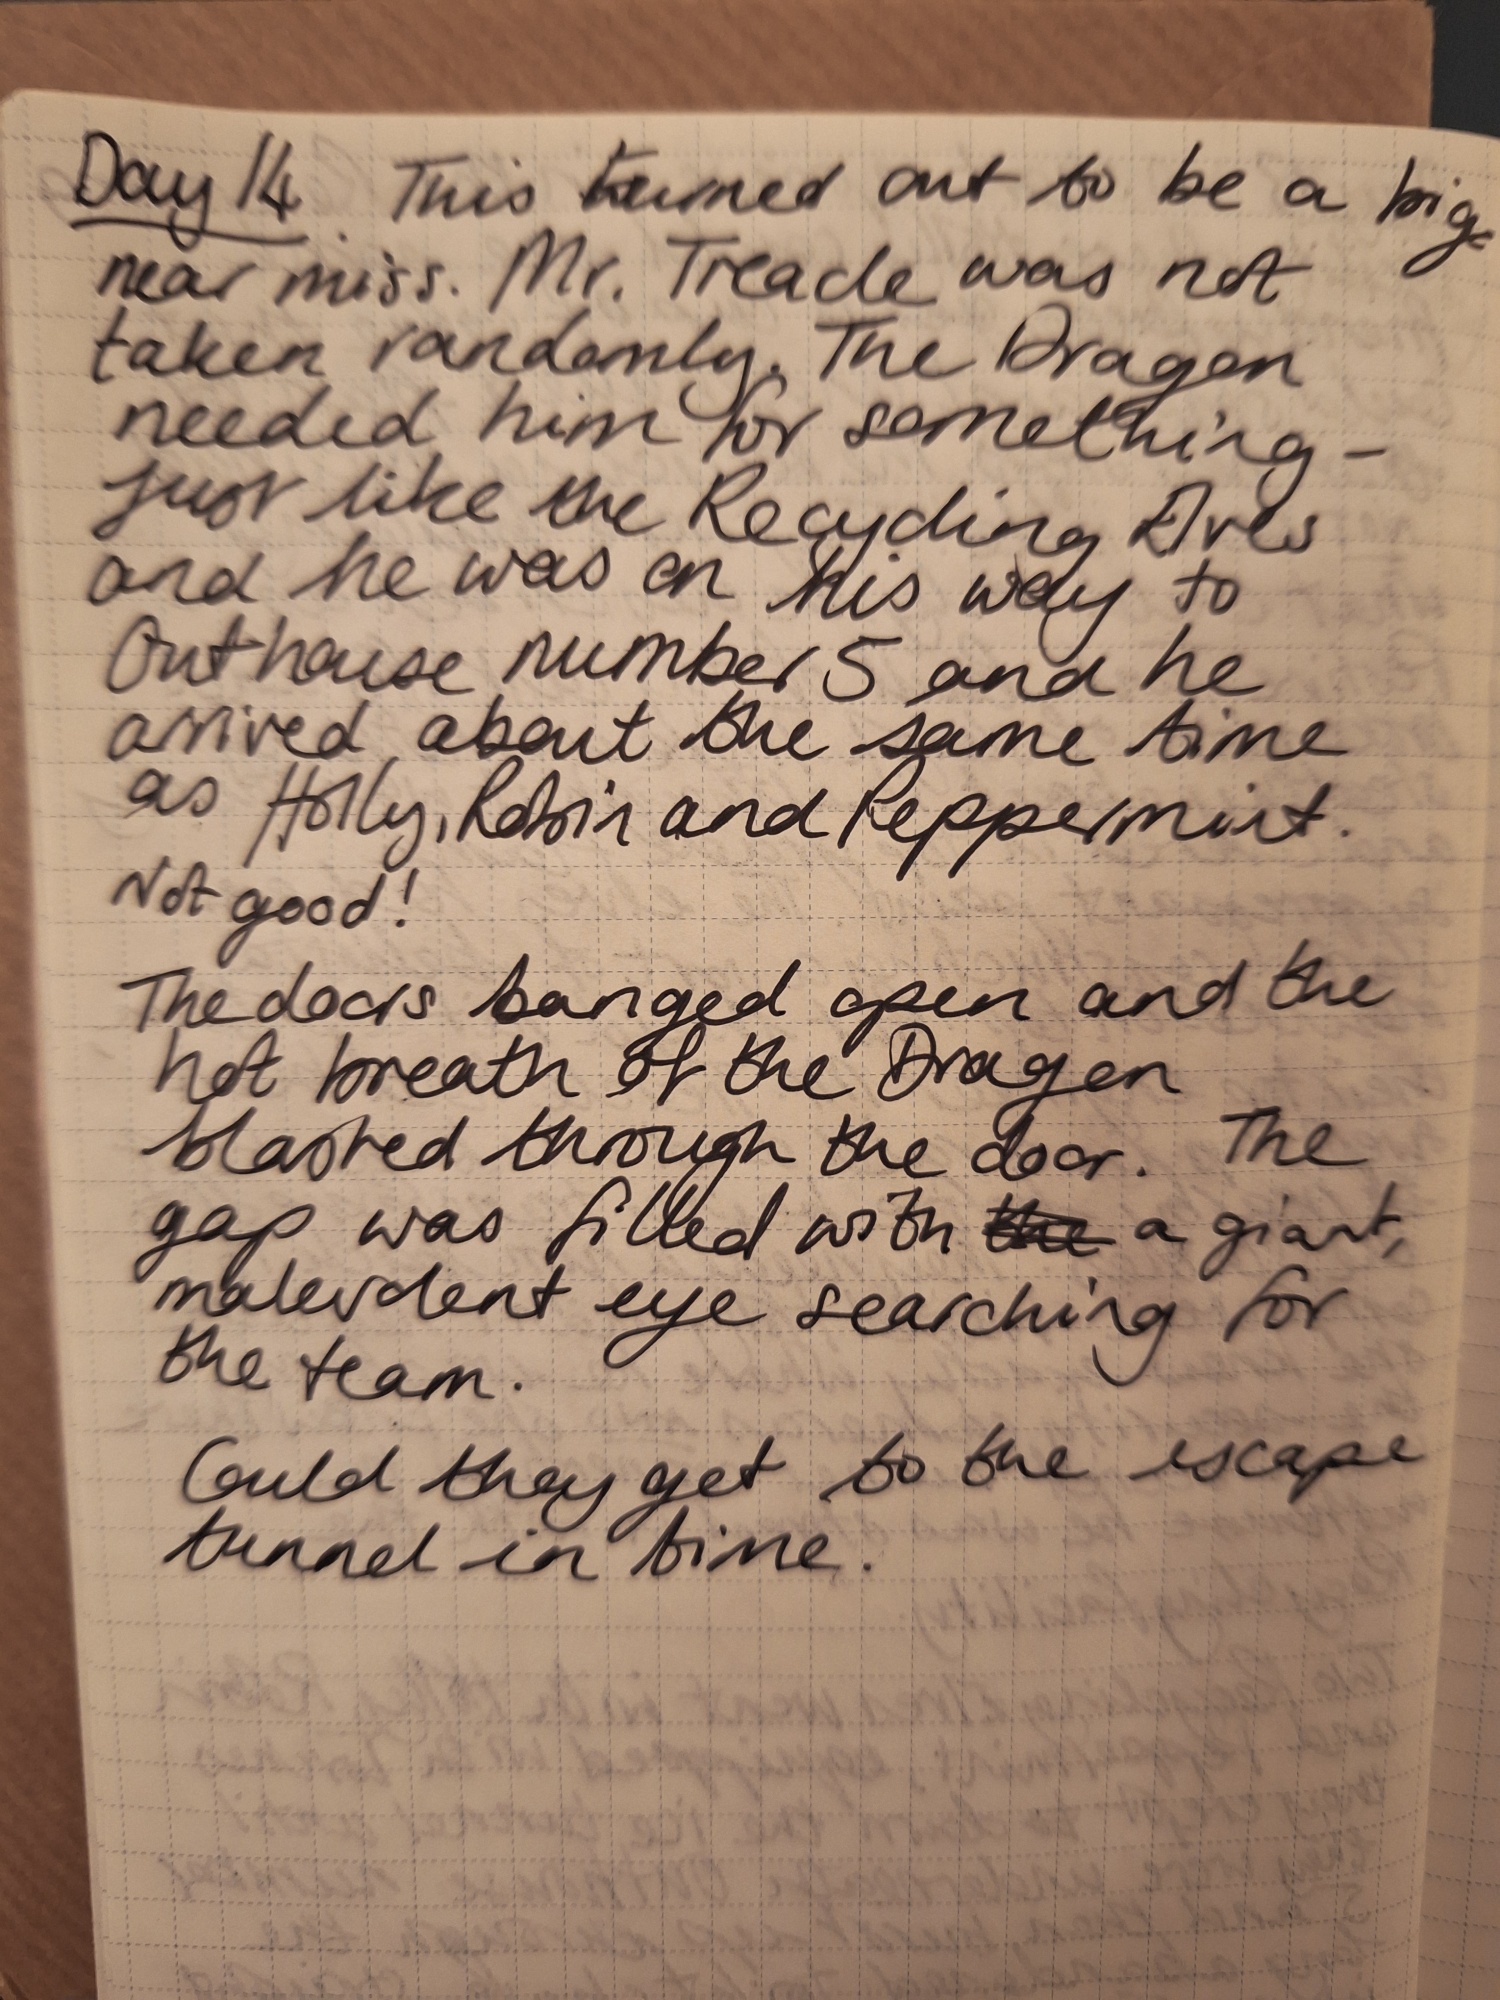 Day 14. This turned out to be a big
near miss. Mr. Treacle was not
taken randomly. The Dragon
needed him for something -
just like the Recycling Elves
and he was on his way to
Outhouse number 5 and he
arrived about the same time
as Holly, Robin and Peppermint.
Not good!
The doors banged open and the
hot breath of the Dragon
blasted through the door. The
gap was filled with the a giant,
malevolent eye searching for
the team.
Could they get to the escape
tunnel in time.